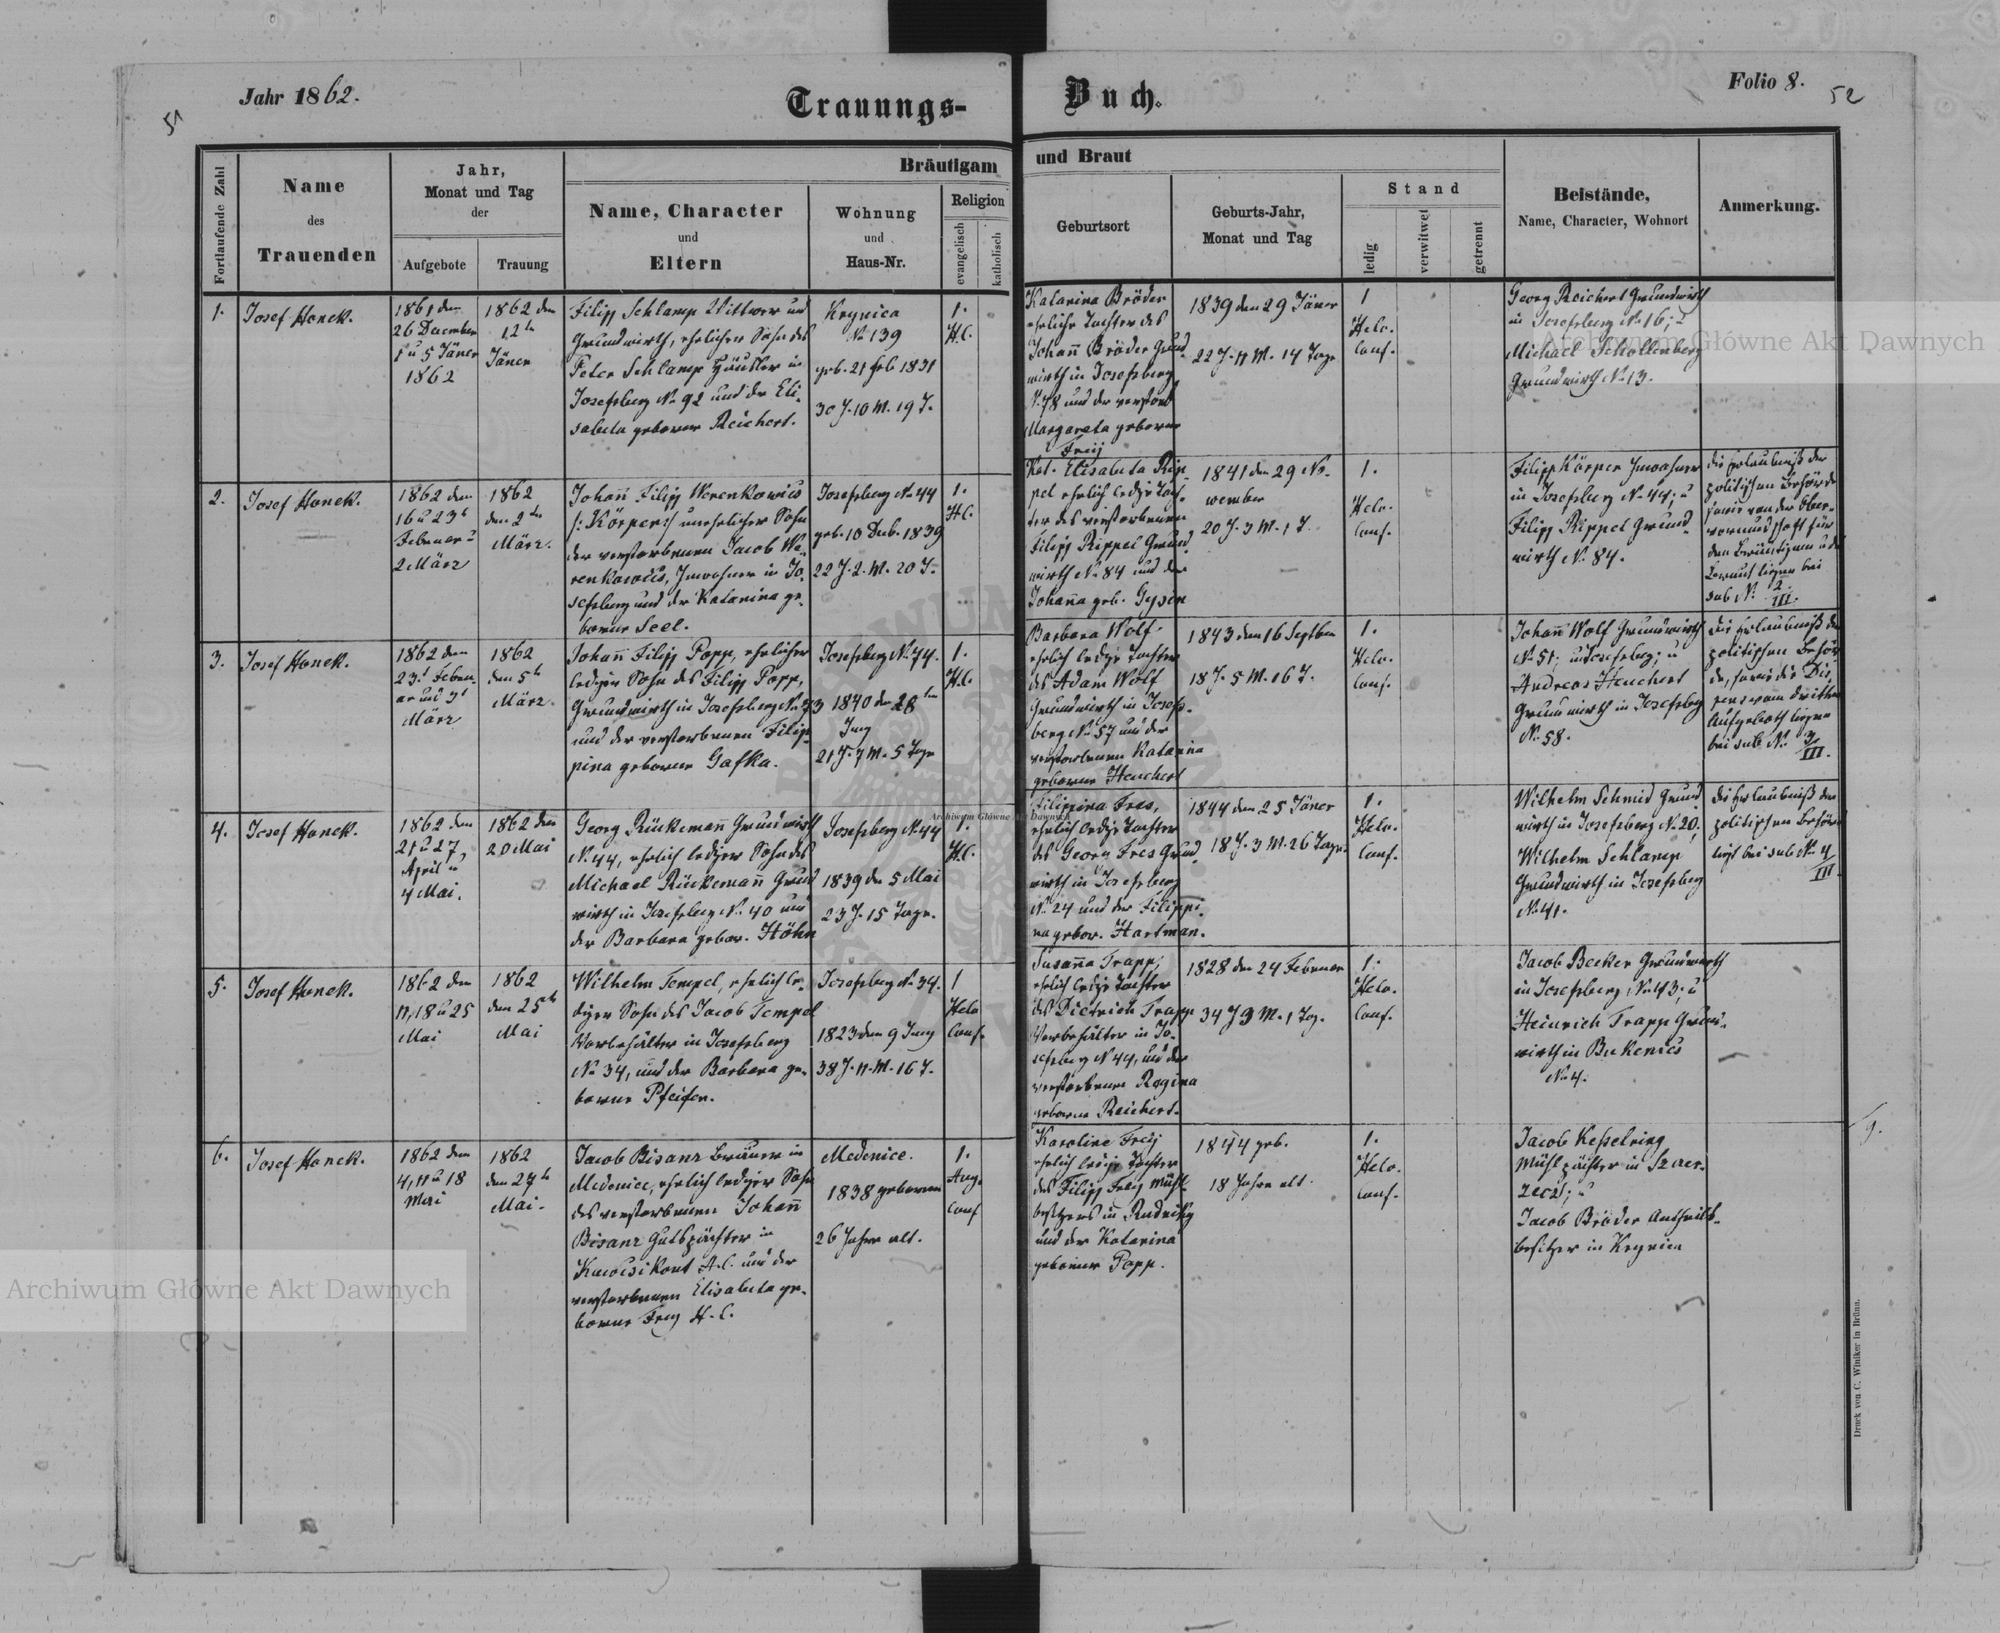 Jahr 1862.
Trauungs-
Buch.
Folio 8.
51
52
Fortlaufende Zahl
Name
des
Trauenden
Jahr,
Monat und Tag
der
Aufgebote
Trauung
Bräutigam
Name, Character
und
Eltern
Wohnung
und
Haus-Nr.
Religion
evangelisch
katholisch
und Braut
Geburtsort
Geburts-Jahr,
Monat und Tag
Stand
ledig
verwitwet
getrennt
Beistände,
Name, Character, Wohnort
Anmerkung.
1.
Josef Honek.
1861 den
26 December
1 u 5 Jäner
1862
1862 den
12ten
Jäner
Filipp Schlamp Wittwer und
Grundwirth, ehelicher Sohn des
Peter Schlamp Häusler in
Josefsberg No 92 und der Eli-
sabeta geborne Reichert.
Krynica
No 139
geb. 21 feb 1831
30 J. 10 M. 19 T.
1.
H.C.
Katarina Bröder
eheliche Tochter des
Johann Bröder Grund
wirth in Josefsberg
N. 78 und der verstorb
Margareta geborne
Freij
1839 den 29 Jäner
22 J. 11 M. 14 Tage
1
Helv.
Conf.
Georg Reichert Grundwirth
in Josefsberg No 16, u
Michael Schollenberg
Grundwirth No 13.
2.
Josef Honek.
1862 den
16 u 23t
Februar u
2 März
1862
den 2ten
März.
Johann Filipp Werenkowics
/: Körper :/ unehelicher Sohn
der verstorbenen Jacob We-
renkowics, Inwohner in Jo-
sefsberg und der Katarina ge-
borne Seel.
Josefsberg No 44
geb. 10 Dec. 1839
22 J. 2. M. 20 T.
1.
H.C.
Kat. Elisabeta Rip-
pel ehelich ledige Toch-
ter des verstorbenen
Filipp Rippel Grund
wirth No 84 und der
Johanna geb. Gysin
1841 den 29 No-
vember
20 J. 3 M. 1 T.
1.
Helv.
Conf.
Filipp Körper Inwohner
in Josefsberg No 44; u
Filipp Rippel Grund-
wirth No 84.
die Erlaubniß der
politischen Behörde
sowie von der Ober-
vormundschaft für
den Bräutigam u die
Braut liegen bei
sub No 2/III.
3.
Josef Honek.
1862 den
23t Febru-
ar und 3t
März
1862
den 5ten
März.
Johann Filipp Popp, ehelicher
lediger Sohn des Filipp Popp,
Grundwirth in Josefsberg No 73
und der verstorbenen Filip-
pina geborne Gafka.
Josefsberg No 74.
1840 den 28ten
Juny
21 J. 7 M. 5 Tage
1.
H.C.
Barbara Wolf
ehelich ledige Tochter
des Adam Wolf
Grundwirth in Josefs-
berg No 57 und der
verstorbenen Katarina
geborne Heuchert
1843 den 16 Septber
18 J. 5 M. 16 T.
1.
Helv.
Conf.
Johann Wolf Grundwirth
No 51; in Josefsberg; u
Andreas Heuchert
Grundwirth in Josefsberg
No 58.
die Erlaubniß der
politischen Behör-
de, sowie die Dis-
pens vom dritten
Aufgeboth liegen
bei sub No 3/III.
4.
Josef Honek.
1862 den
21 u 27
April u
4 Mai.
1862 den
20 Mai
Georg Rückemann Grundwirth
No 44, ehelich lediger Sohn des
Michael Rückemann Grund
wirth in Josefsberg No 40 und
der Barbara gebor. Höhn
Josefsberg No 44
1839 den 5 Mai
23 J. 15 Tage.
1.
H.C.
Filippina Fres,
ehelich ledige Tochter
des Georg Fres Grund
wirth in Josefsberg
No 24 und der Filippi-
na gebor. Hartman.
1844 den 25 Jäner
18 J. 3 M. 26 Tage.
1.
Helv.
Conf.
Wilhelm Schmid Grund
wirth in Josefsberg No 20;
Wilhelm Schlamp
Grundwirth in Josefsberg
No 41.
die Erlaubniß der
politischen Behörde
liegt bei sub No 4/III
5.
Josef Honek.
1862 den
11, 18 u 25
Mai
1862
den 25ten
Mai
Wilhelm Tempel, ehelich le-
diger Sohn des Jacob Tempel
Vorbehälter in Josefsberg
No 34, und der Barbara ge-
borne Pfeifer.
Josefsberg No 34.
1823 den 9 Juny
38 J. 11. M. 16 T.
1
Helv
Conf.
Susanna Trapp,
ehelich ledige Tochter
des Dietrich Trapp
Vorbehälter in Jo-
sefsberg No 44, und der
verstorbenen Regina
geborne Reichert.
1828 den 24 Februar
34 J 3 M. 1 Tag.
1.
Helv.
Conf.
Jacob Becker Grundwirth
in Josefsberg No 43; u
Heinrich Trapp Grund-
wirth in Bukenics
No 4.
6.
Josef Honek.
1862 den
4, 11 u 18
Mai
1862
den 27ten
Mai.
Jacob Bisanz Bräuer in
Medenice, ehelich lediger Sohn
des verstorbenen Johann
Bisanz Gutspächter in
A.C. und der
verstorbenen Elisabeta ge-
borne Frey H.C.
Medenice.
1838 geboren
26 Jahre alt.
1.
Aug.
Conf
Karoline Freij
ehelich ledige Tochter
des Filipp Freij Mühl-
besitzers in Rudniky
und der Katarina
geborner Popp.
1844 geb.
18 Jahre alt.
1.
Helv.
Conf.
Jacob Kesselring
Mühlpächter in
u
Jacob Bröder Antheils-
besitzer in Krynica
g.
Druck von C. Winiker in Brünn.
Archiwum Główne Akt Dawnych
Archiwum Główne Akt Dawnych
Archiwum Główne Akt Dawnych